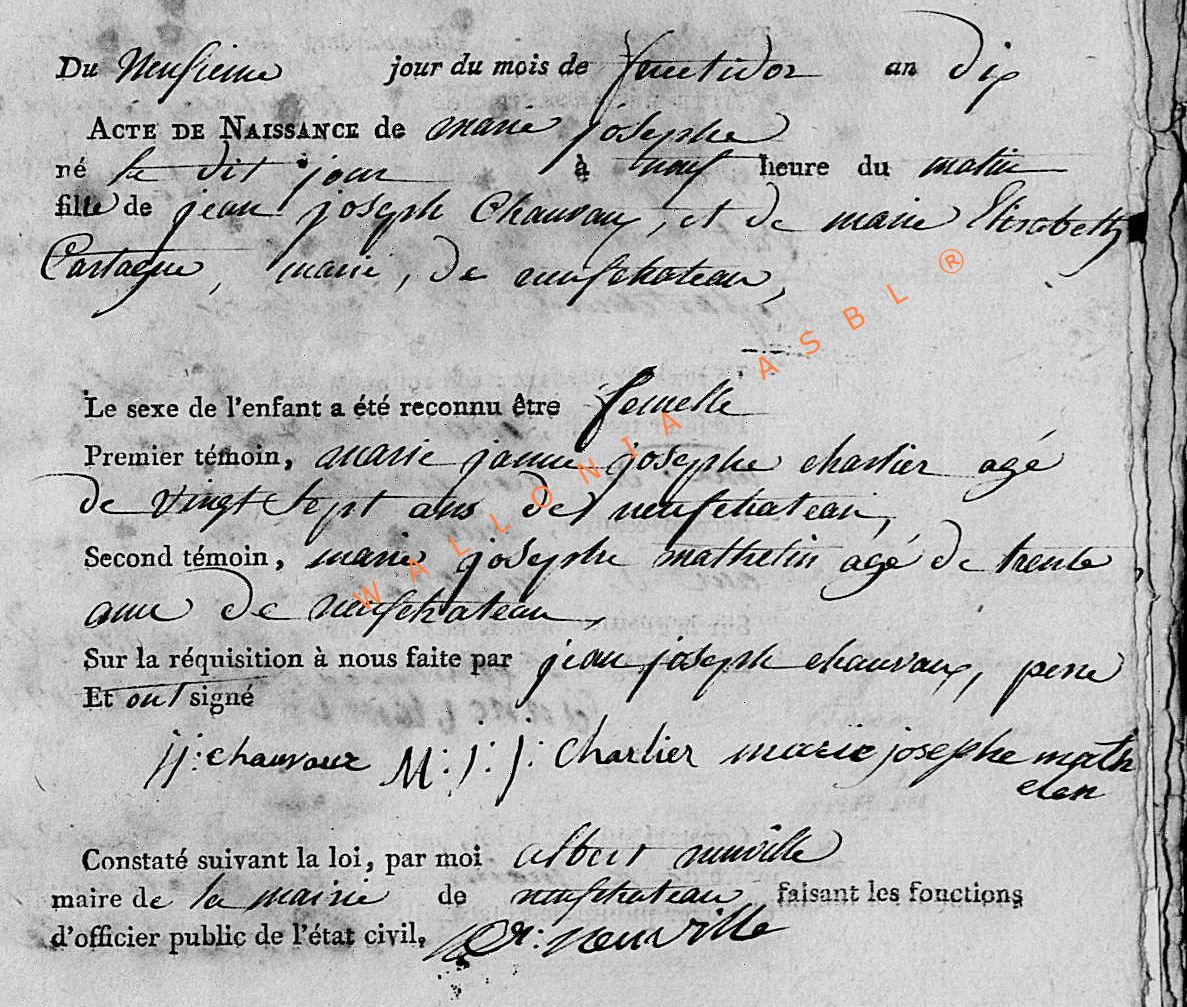 Du Neufieme jour du mois de fructidor an dix
ACTE DE NAISSANCE de marie josephe
né le dit jour à neuf heure du matin
fille de jean joseph Chauvaux, et de marie Elisabeth
Castagne, marié, de neufchateau,
Le sexe de l'enfant a été reconnu être femelle
Premier témoin, marie janne josephe charlier agé
de vingt sept ans de neufchateau,
Second témoin, marie josephe mathelin agé de trente
ans de neufchateau,
Sur la réquisition à nous faite par jean joseph chauvaux, pere
Et ont signé
jj: chauvaux M: j: j: charlier marie josephe math
elen
Constaté suivant la loi, par moi albert neuville
maire de la mairie de neufchateau faisant les fonctions
d'officier public de l'état civil, neuville
WALLONIA ASBL ®